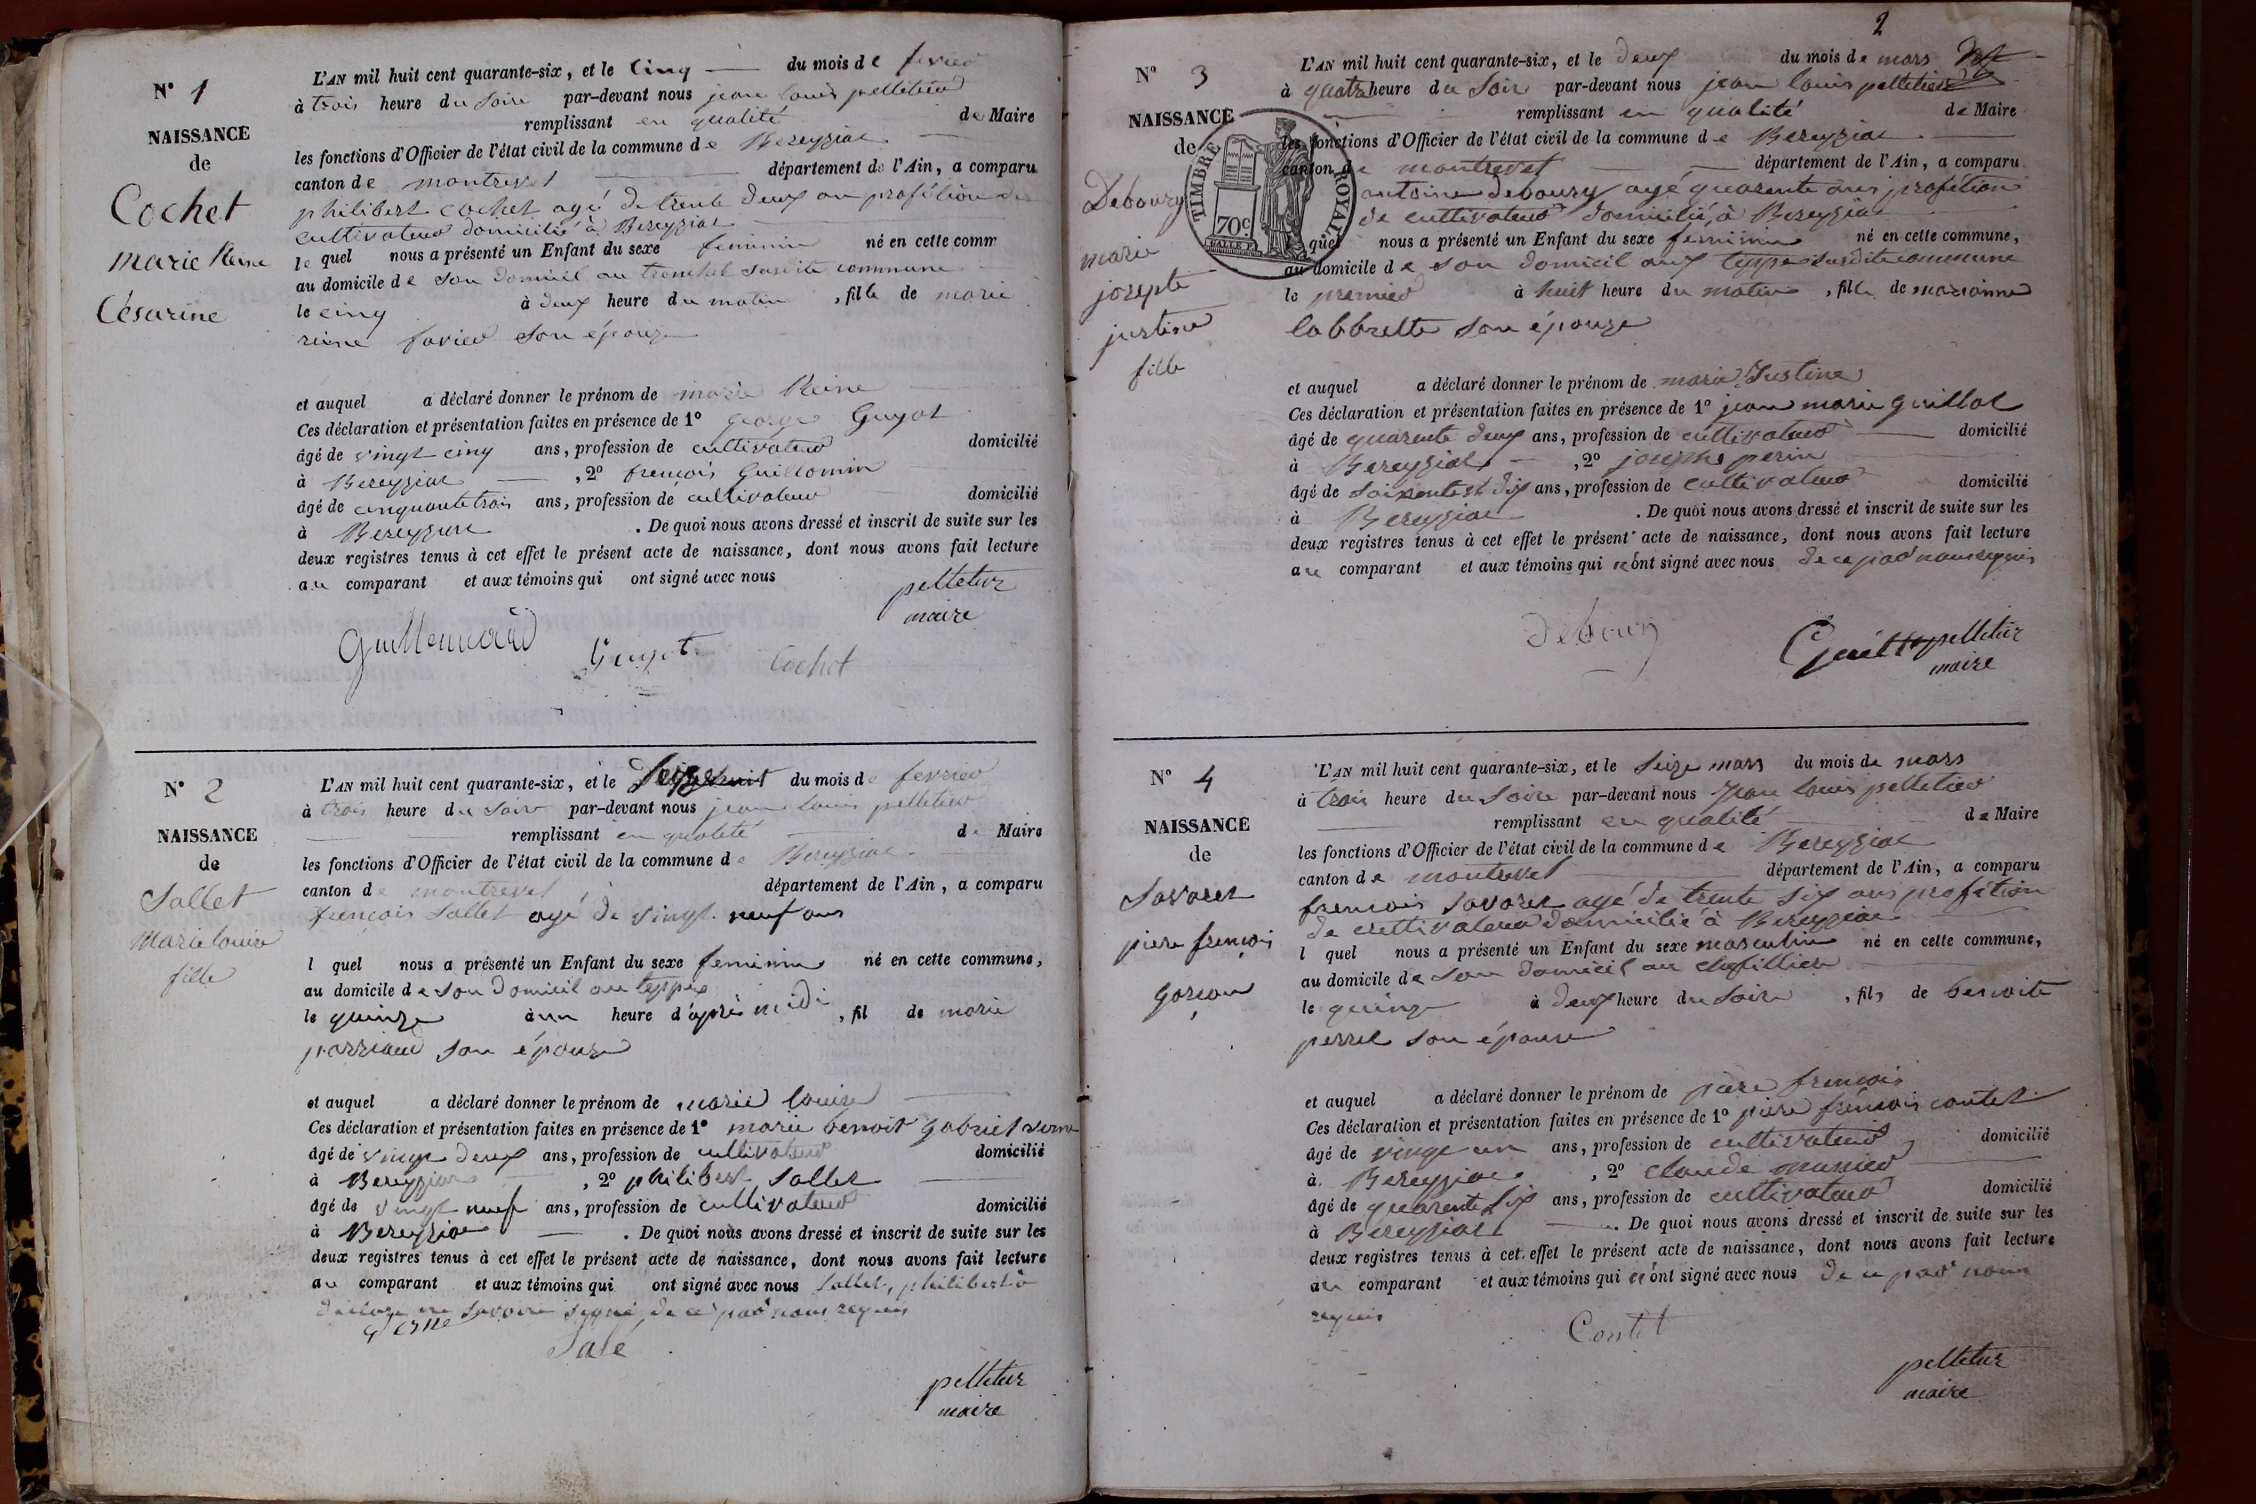 N° 1
NAISSANCE
de
Cochet
marie Reine
Césarine
L'AN mil huit cent quarante-six, et le cinq du mois de fevrier
à trois heure du soire par-devant nous jean louis pelletier
remplissant en qualité de Maire
les fonctions d'Officier de l'état civil de la commune de Bereyziat
canton de montrevel département de l'Ain, a comparu
philibert cochet agé de trente deux an profétion de
cultivateur domicilié à Bereyziat
le quel nous a présenté un Enfant du sexe feminin né en cette comm
au domicile de son domicil au susdite commune
le cinq à deux heure du matin, fille de marie
reine favier son épouze
et auquel a déclaré donner le prénom de marie Reine
Ces déclaration et présentation faites en présence de 1° george Guyot
âgé de vingt cinq ans, profession de cultivateur domicilié
à Bereyziat, 2° françois Guillomin
âgé de cinquante trois ans, profession de cultivateur domicilié
à Bereyziat. De quoi nous avons dressé et inscrit de suite sur les
deux registres tenus à cet effet le présent acte de naissance, dont nous avons fait lecture
au comparant et aux témoins qui ont signé avec nous
pelletier
maire
Guyot Cochet
N° 2
NAISSANCE
de
Sallet
Marie louise
fille
L'AN mil huit cent quarante-six, et le seize du mois de fevrier
à trois heure du soire par-devant nous jean louis pelletier
remplissant en qualité de Maire
les fonctions d'Officier de l'état civil de la commune de Bereyziat
canton de montrevel département de l'Ain, a comparu
françois Sallet agé de vingt neuf ans
l quel nous a présenté un Enfant du sexe feminin né en cette commune,
au domicile de son domicil au teppes
le quinze à un heure d'après midi, fil de marie
son épouze
et auquel a déclaré donner le prénom de marie louise
Ces déclaration et présentation faites en présence de 1° marie benoit gabriel
âgé de vingt deux ans, profession de cultivateur domicilié
à Bereyziat, 2° philibert Sallet
âgé de vingt neuf ans, profession de cultivateur domicilié
à Bereyziat. De quoi nous avons dressé et inscrit de suite sur les
deux registres tenus à cet effet le présent acte de naissance, dont nous avons fait lecture
au comparant et aux témoins qui ont signé avec nous Sallet, philibert à
déclaré ne savoire signé, de ce par nous requis
Salé
pelletier
maire
2
N° 3
NAISSANCE
de
TIMBRE ROYAL
70c
Debourg
marie
josepte
justine
fille
L'AN mil huit cent quarante-six, et le deux du mois de mars
à quatre heure du soir par-devant nous jean louis pelletier
remplissant en qualité de Maire
les fonctions d'Officier de l'état civil de la commune de Bereyziat
canton de montrevel département de l'Ain, a comparu
antoine debourg agé quarente ans profétion
de cultivateur domicilié à Bereyziat
quel nous a présenté un Enfant du sexe feminin né en cette commune,
au domicile de son domicil aux teppes susdite commune
le premier à huit heure du matin, fille de marianne
labbrette son épouze
et auquel a déclaré donner le prénom de marie Justine
Ces déclaration et présentation faites en présence de 1° jean marie guillot
âgé de quarente deux ans, profession de cultivateur domicilié
à Bereyziat, 2° josephe perin
âgé de soixente et dix ans, profession de cultivateur domicilié
à Bereyziat. De quoi nous avons dressé et inscrit de suite sur les
deux registres tenus à cet effet le présent acte de naissance, dont nous avons fait lecture
au comparant et aux témoins qui ont signé avec nous de ce par nous requis
debourg
pelletier
maire
N° 4
NAISSANCE
de
Savaret
piere françois
garçon
L'AN mil huit cent quarante-six, et le seize mars du mois de mars
à trois heure du soire par-devant nous jean louis pelletier
remplissant en qualité de Maire
les fonctions d'Officier de l'état civil de la commune de Bereyziat
canton de montrevel département de l'Ain, a comparu
françois savaret agé de trente six ans profétion
de cultivateur domicilié à Bereyziat
l quel nous a présenté un Enfant du sexe masculin né en cette commune,
au domicile de son domicil au
le quinze à deux heure du soire, fils de benoite
perret son épouse
et auquel a déclaré donner le prénom de piere françois
Ces déclaration et présentation faites en présence de 1° piere françois contet
âgé de vingt un ans, profession de cultivateur domicilié
à Bereyziat, 2° claude munier
âgé de quarente six ans, profession de cultivateur domicilié
à Bereyziat. De quoi nous avons dressé et inscrit de suite sur les
deux registres tenus à cet effet le présent acte de naissance, dont nous avons fait lecture
au comparant et aux témoins qui ont signé avec nous de ce par nous
requis
Contet
pelletier
maire